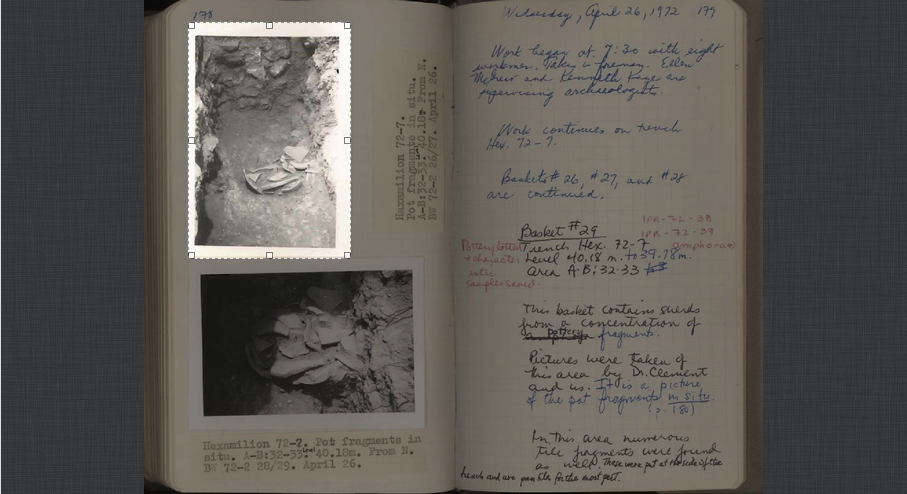 178
Hexamilion 72-7.
Pot fragments in situ.
A-B:32-33. Lvl 40.18m From N.
BW 72-2 26/27. April 26.
Hexamilion 72-7. Pot fragments in
situ. A-B:32-33. Lvl 40.18m. From N.
BW 72-2 28/29. April 26.
Wednesday, April 26, 1972 179
Work began at 7:30 with eight
workmen. Takis is foreman. Ellen
and Kenneth are
supervising archaeologists.
Work continues on trench
Hex. 72-7.
Baskets #26, #27, and #28
are continued.
Basket #29
Trench Hex. 72-7
Level 40.18 m. to 39.78m.
Area A-B:32-33
IPR-72-38
IPR-72-39
(amphorae)
Pottery lotted
+ character
istic
samples saved.
This basket contains sherds
from a concentration of
pottery fragments.
Pictures were taken of
this area by Dr. Clement
and us. It is a picture
of the pot fragments in situ.
(p. 178)
In this area numerous
tile fragments were found
as well. These were put at the side of the
trench and are pan tile for the most part.